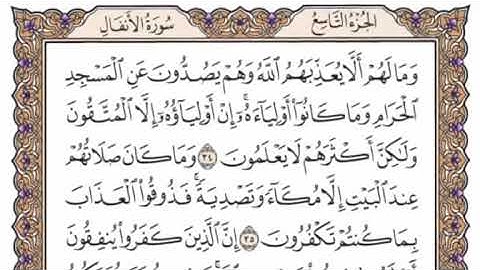 الجُزْءُ التَّاسِعُ
سُورَةُ الأَنفَالِ
وَمَا لَهُمْ أَلَّا يُعَذِّبَهُمُ ٱللَّهُ وَهُمْ يَصُدُّونَ عَنِ ٱلْمَسْجِدِ
ٱلْحَرَامِ وَمَا كَانُوٓاْ أَوْلِيَآءَهُۥٓۚ إِنْ أَوْلِيَآؤُهُۥٓ إِلَّا ٱلْمُتَّقُونَ
وَلَٰكِنَّ أَكْثَرَهُمْ لَا يَعْلَمُونَ ٣٤ وَمَا كَانَ صَلَاتُهُمْ
عِندَ ٱلْبَيْتِ إِلَّا مُكَآءً وَتَصْدِيَةًۚ فَذُوقُواْ ٱلْعَذَابَ
بِمَا كُنتُمْ تَكْفُرُونَ ٣٥ إِنَّ ٱلَّذِينَ كَفَرُواْ يُنفِقُونَ